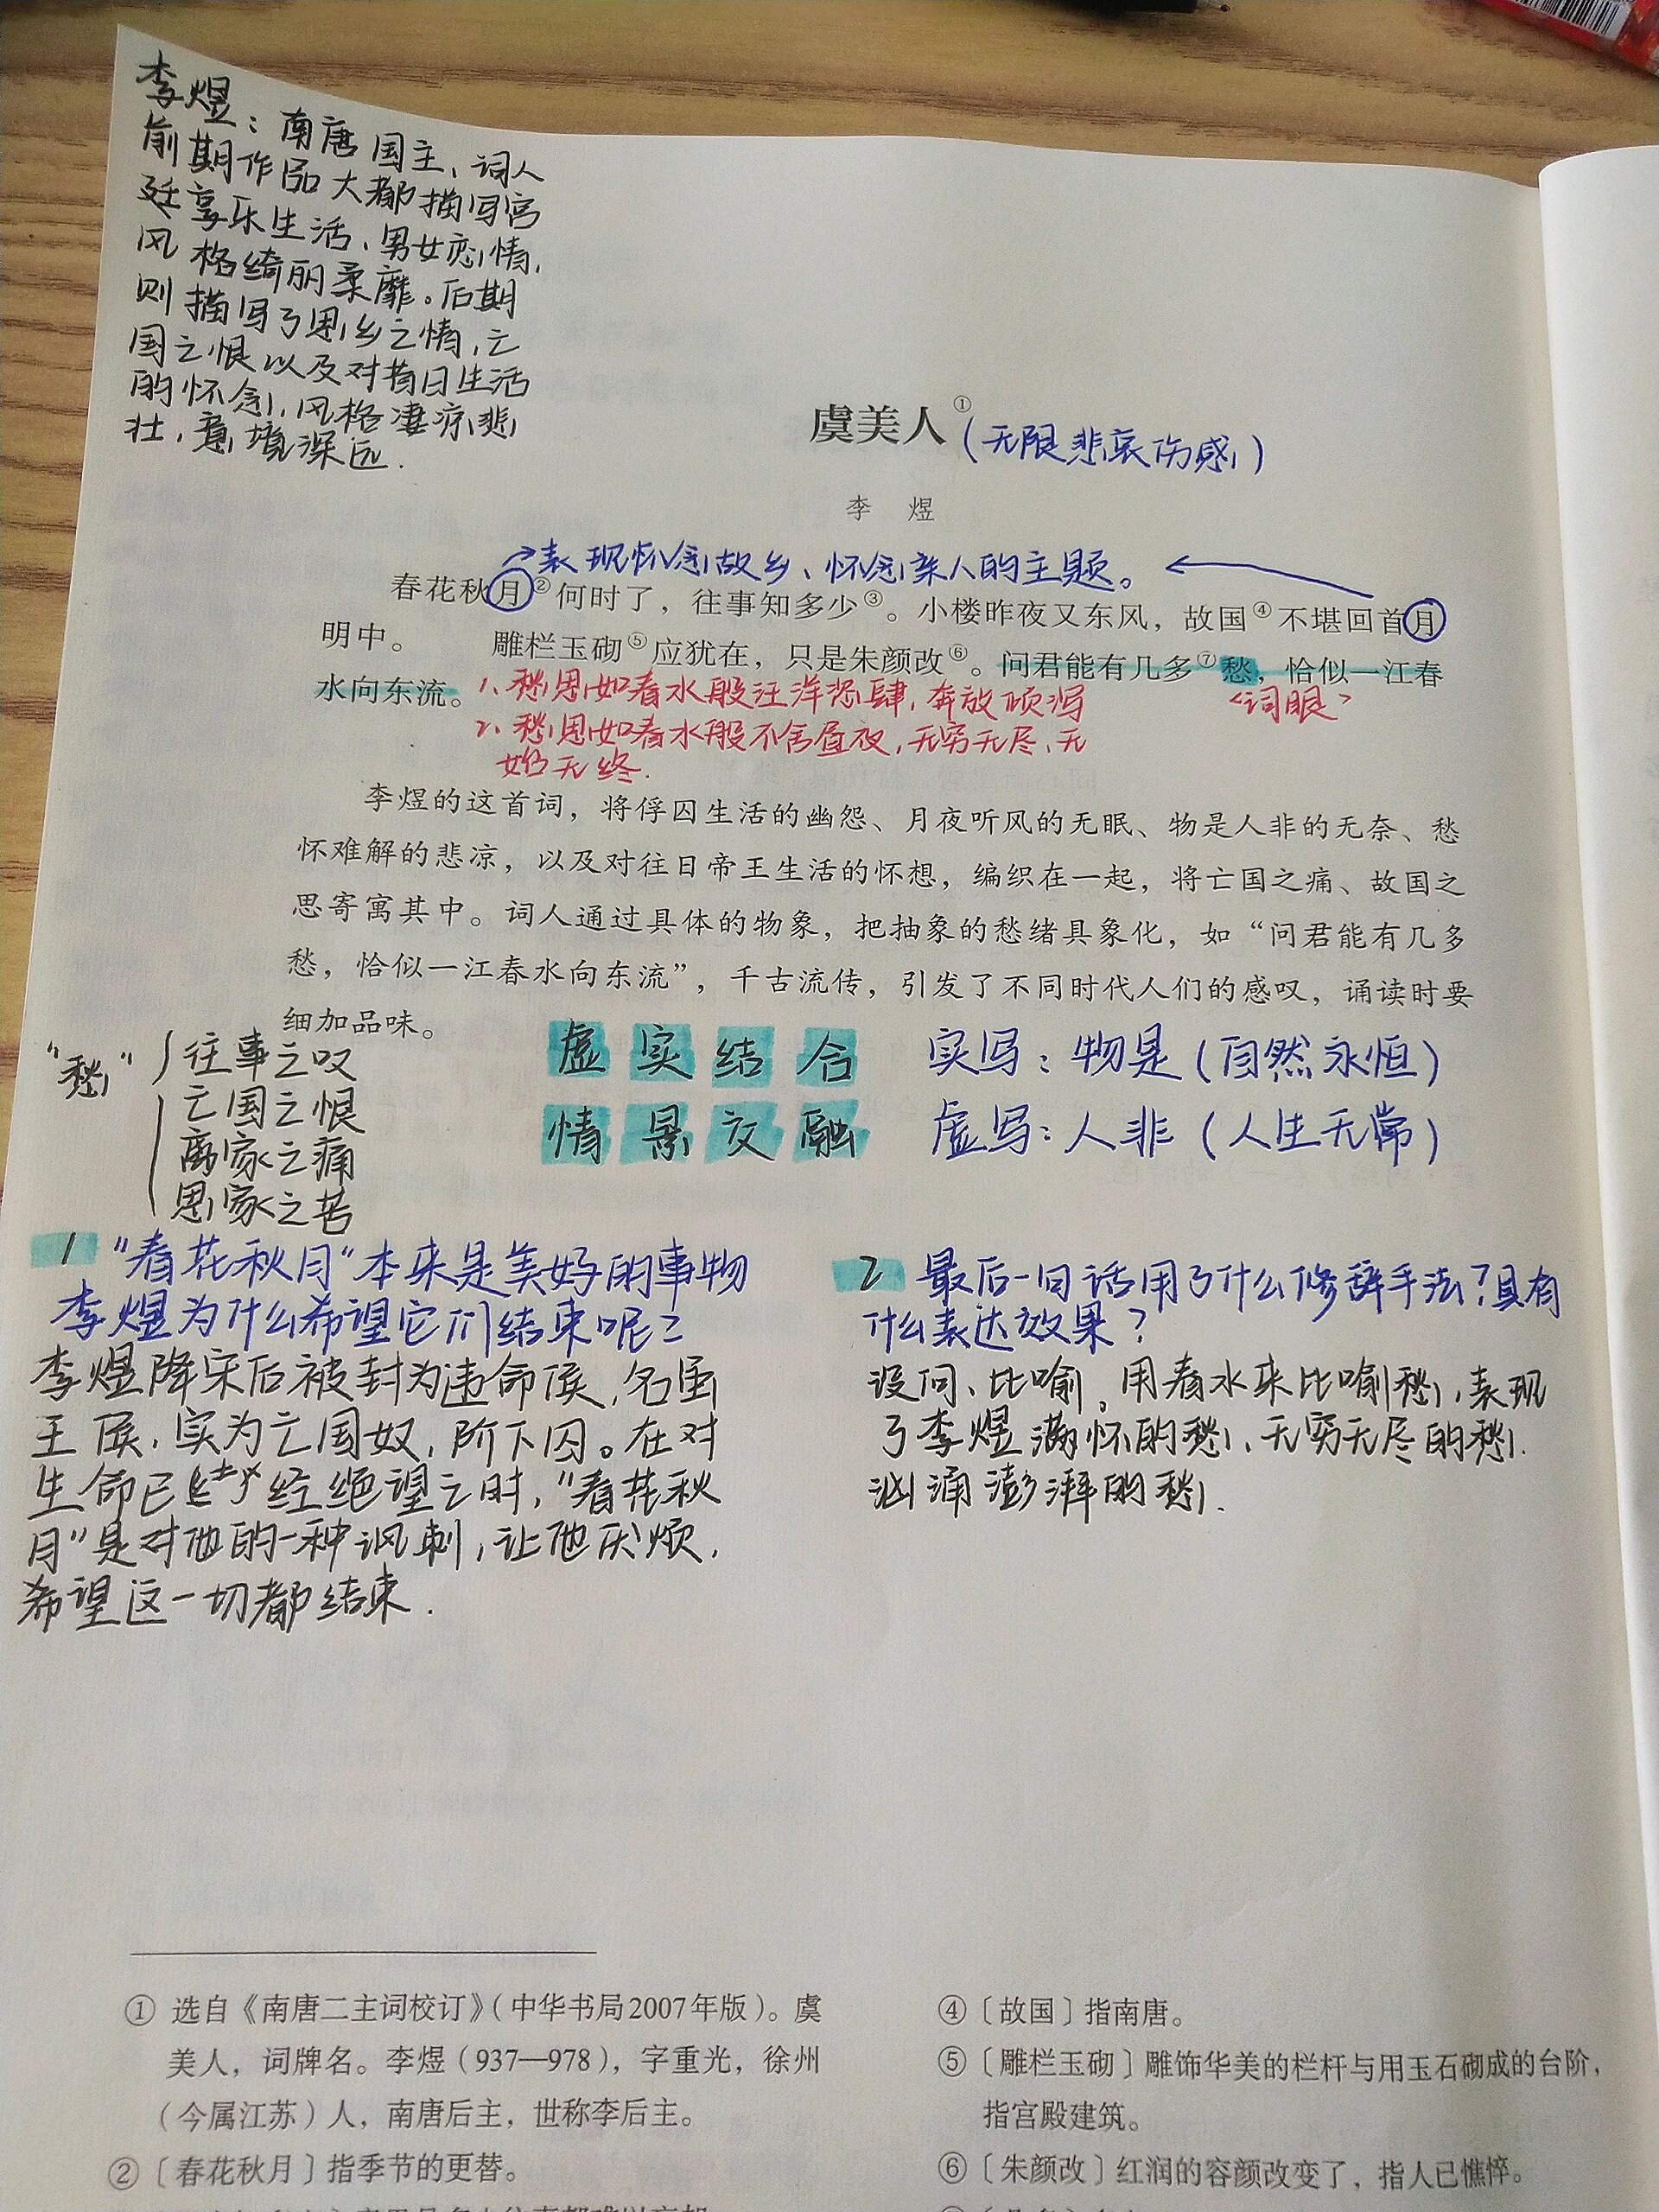 李煜：南唐国主、词人
前期作品大都描写宫
廷享乐生活、男女恋情,
风格绮丽柔靡。后期
则描写了思乡之情,亡
国之恨以及对昔日生活
的怀念,风格凄凉悲
壮,意境深远.
虞美人①(无限悲哀伤感)
李 煜
表现怀念故乡、怀念亲人的主题。
春花秋月②何时了，往事知多少③。小楼昨夜又东风，故国④不堪回首月
明中。 雕栏玉砌⑤应犹在，只是朱颜改⑥。问君能有几多⑦愁，恰似一江春
水向东流。
1、愁思如春水般汪洋恣肆,奔放倾泻
<词眼>
2、愁思如春水般不舍昼夜,无穷无尽、无
始无终.
李煜的这首词，将俘囚生活的幽怨、月夜听风的无眠、物是人非的无奈、愁
怀难解的悲凉，以及对往日帝王生活的怀想，编织在一起，将亡国之痛、故国之
思寄寓其中。词人通过具体的物象，把抽象的愁绪具象化，如“问君能有几多
愁，恰似一江春水向东流”，千古流传，引发了不同时代人们的感叹，诵读时要
细加品味。
"愁"
往事之叹
亡国之恨
离家之痛
思家之苦
虚实结合
情景交融
实写：物是(自然永恒)
虚写：人非(人生无常)
1 "春花秋月"本来是美好的事物
李煜为什么希望它们结束呢？
李煜降宋后被封为违命侯,名虽
王侯,实为亡国奴,阶下囚。在对
生命已经绝望之时,"春花秋
月"是对他的一种讽刺,让他厌烦,
希望这一切都结束.
2 最后一句话用了什么修辞手法？具有
什么表达效果？
设问、比喻。用春水来比喻愁,表现
了李煜满怀的愁、无穷无尽的愁.
汹涌澎湃的愁.
① 选自《南唐二主词校订》（中华书局2007年版）。虞
美人，词牌名。李煜（937—978），字重光，徐州
（今属江苏）人，南唐后主，世称李后主。
②〔春花秋月〕指季节的更替。
④〔故国〕指南唐。
⑤〔雕栏玉砌〕雕饰华美的栏杆与用玉石砌成的台阶，
指宫殿建筑。
⑥〔朱颜改〕红润的容颜改变了，指人已憔悴。